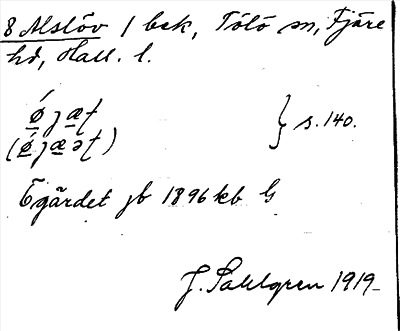 8 Alslöv 1 bsk, Tölö sn, Fjäre
hd, Hall. l.
ǿȷæƭ } s. 140.
(ǿȷæəƭ)
Ögärdet jb 1896 kb G
J. Sahlgren 1919